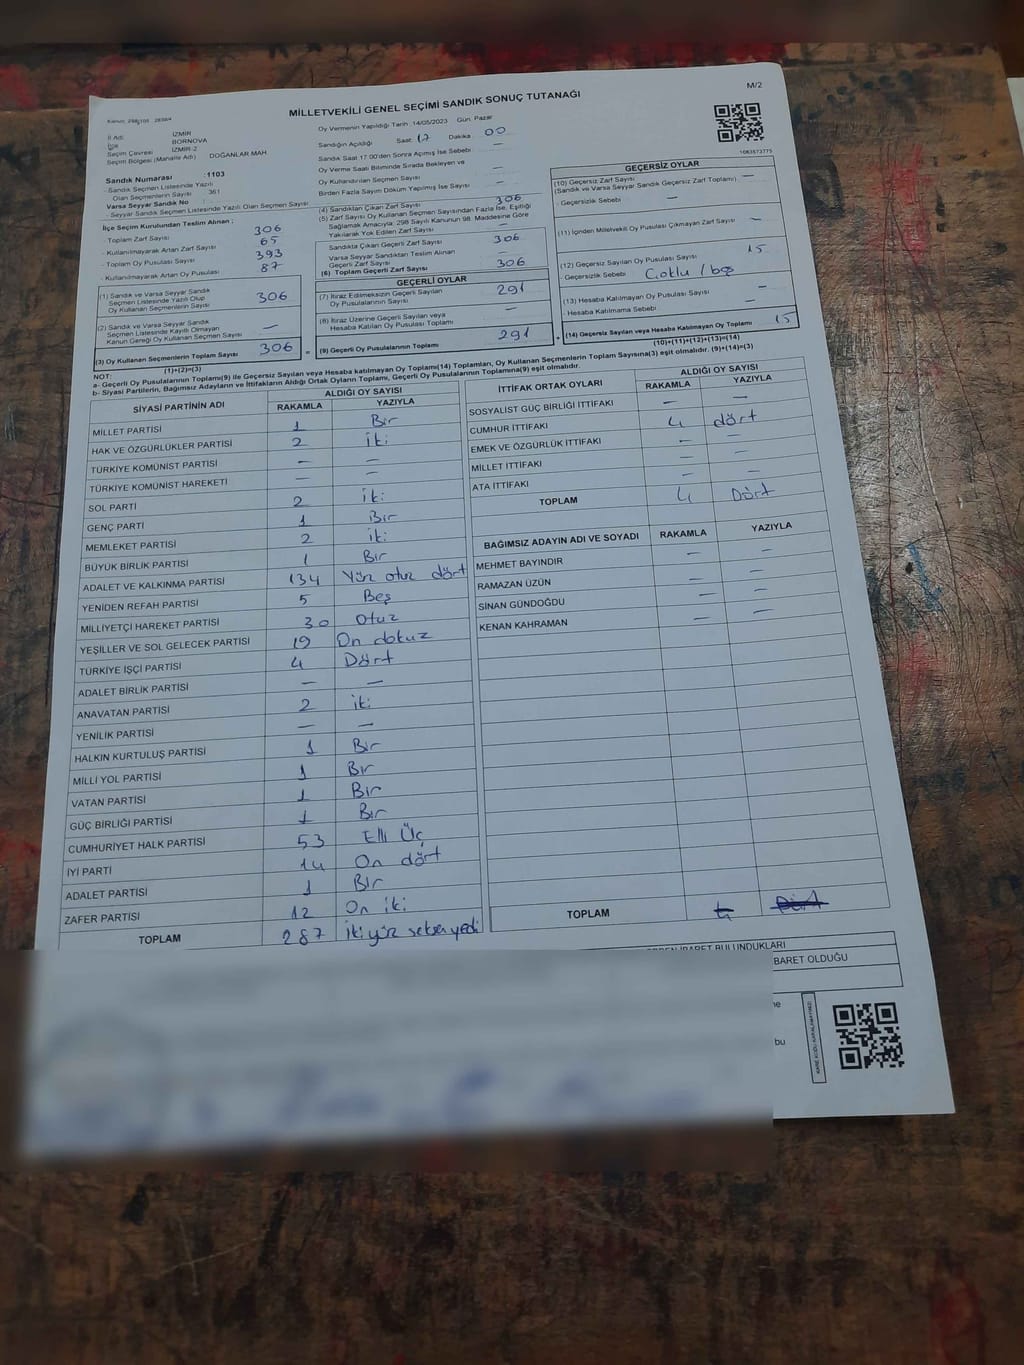 M/2
MİLLETVEKİLİ GENEL SEÇİMİ SANDIK SONUÇ TUTANAĞI
İl Adı İZMİR
İlçe BORNOVA
Seçim Çevresi İZMİR-2
Seçim Bölgesi (Mahalle Adı) DOĞANLAR MAH.
Sandık Numarası :1103
- Sandık Seçmen Listesinde Yazılı
Olan Seçmenlerin Sayısı 361
Varsa Seyyar Sandık No
- Seyyar Sandık Seçmen Listesinde Yazılı Olan Seçmen Sayısı
Oy Vermenin Yapıldığı Tarih :14/05/2023 Gün: Pazar
Sandığın Açıldığı Saat: 17 Dakika: 00
Sandık Saat 17:00'den Sonra Açılmış İse Sebebi —
Oy Verme Saati Bitiminde Sırada Bekleyen ve
Oy Kullandırılan Seçmen Sayısı —
Birden Fazla Sayım Döküm Yapılmış İse Sayısı —
İlçe Seçim Kurulundan Teslim Alınan ;
- Toplam Zarf Sayısı 306
- Kullanılmayarak Artan Zarf Sayısı 65
- Toplam Oy Pusulası Sayısı 393
- Kullanılmayarak Artan Oy Pusulası 87
(1) Sandık ve Varsa Seyyar Sandık
Seçmen Listesinde Yazılı Olup
Oy Kullanan Seçmenlerin Sayısı 306
(2) Sandık ve Varsa Seyyar Sandık
Seçmen Listesinde Kayıtlı Olmayan
Kanun Gereği Oy Kullanan Seçmen Sayısı —
(3) Oy Kullanan Seçmenlerin Toplam Sayısı 306
(1)+(2)=(3)
(4) Sandıktan Çıkan Zarf Sayısı 306
(5) Zarf Sayısı Oy Kullanan Seçmen Sayısından Fazla İse, Eşitliği
Sağlamak Amacıyla; 298 Sayılı Kanunun 98. Maddesine Göre
Yakılarak Yok Edilen Zarf Sayısı —
Sandıkta Çıkan Geçerli Zarf Sayısı 306
Varsa Seyyar Sandıktan Teslim Alınan
Geçerli Zarf Sayısı —
(6) Toplam Geçerli Zarf Sayısı 306
GEÇERLİ OYLAR
(7) İtiraz Edilmeksizin Geçerli Sayılan
Oy Pusulalarının Sayısı 291
(8) İtiraz Üzerine Geçerli Sayılan veya
Hesaba Katılan Oy Pusulası Toplamı —
(9) Geçerli Oy Pusulalarının Toplamı 291
1083873775
GEÇERSİZ OYLAR
(10) Geçersiz Zarf Sayısı
(Sandık ve Varsa Seyyar Sandık Geçersiz Zarf Toplamı) —
- Geçersizlik Sebebi —
(11) İçinden Milletvekili Oy Pusulası Çıkmayan Zarf Sayısı —
(12) Geçersiz Sayılan Oy Pusulası Sayısı 15
- Geçersizlik Sebebi Çoklu / boş
(13) Hesaba Katılmayan Oy Pusulası Sayısı —
- Hesaba Katılmama Sebebi —
(14) Geçersiz Sayılan veya Hesaba Katılmayan Oy Toplamı 15
(10)+(11)+(12)+(13)=(14)
NOT:
a- Geçerli Oy Pusulalarının Toplamı(9) ile Geçersiz Sayılan veya Hesaba katılmayan Oy Toplamı(14) Toplamları, Oy Kullanan Seçmenlerin Toplam Sayısına(3) eşit olmalıdır. (9)+(14)=(3)
b- Siyasi Partilerin, Bağımsız Adayların ve İttifakların Aldığı Ortak Oyların Toplamı, Geçerli Oy Pusulalarının Toplamına(9) eşit olmalıdır.
SİYASİ PARTİNİN ADI ALDIĞI OY SAYISI
RAKAMLA YAZIYLA
MİLLET PARTİSİ 1 Bir
HAK VE ÖZGÜRLÜKLER PARTİSİ 2 iki
TÜRKİYE KOMÜNİST PARTİSİ — —
TÜRKİYE KOMÜNİST HAREKETİ — —
SOL PARTİ 2 iki
GENÇ PARTİ 1 Bir
MEMLEKET PARTİSİ 2 iki
BÜYÜK BİRLİK PARTİSİ 1 Bir
ADALET VE KALKINMA PARTİSİ 134 Yüz otuz dört
YENİDEN REFAH PARTİSİ 5 Beş
MİLLİYETÇİ HAREKET PARTİSİ 30 otuz
YEŞİLLER VE SOL GELECEK PARTİSİ 19 On dokuz
TÜRKİYE İŞÇİ PARTİSİ 4 Dört
ADALET BİRLİK PARTİSİ — —
ANAVATAN PARTİSİ 2 iki
YENİLİK PARTİSİ — —
HALKIN KURTULUŞ PARTİSİ 1 Bir
MİLLİ YOL PARTİSİ 1 Bir
VATAN PARTİSİ 1 Bir
GÜÇ BİRLİĞİ PARTİSİ 1 Bir
CUMHURİYET HALK PARTİSİ 53 Elli Üç
İYİ PARTİ 14 On dört
ADALET PARTİSİ 1 Bir
ZAFER PARTİSİ 12 On iki
TOPLAM 287 İkiyüz seksenyedi
İTTİFAK ORTAK OYLARI ALDIĞI OY SAYISI
RAKAMLA YAZIYLA
SOSYALİST GÜÇ BİRLİĞİ İTTİFAKI — —
CUMHUR İTTİFAKI 4 dört
EMEK VE ÖZGÜRLÜK İTTİFAKI — —
MİLLET İTTİFAKI — —
ATA İTTİFAKI — —
TOPLAM 4 Dört
BAĞIMSIZ ADAYIN ADI VE SOYADI RAKAMLA YAZIYLA
MEHMET BAYINDIR — —
RAMAZAN ÜZÜN — —
SİNAN GÜNDOĞDU — —
KENAN KAHRAMAN — —
TOPLAM 4 Dört
İBARET BULUNDUKLARI
BARET OLDUĞU
bu